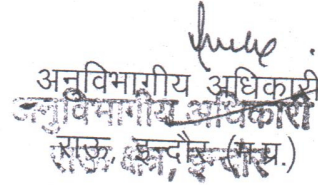 अनुविभागीय अधिकारी
अनुविभागीय अधिकारी
राऊ इन्दौर (म.प्र.)